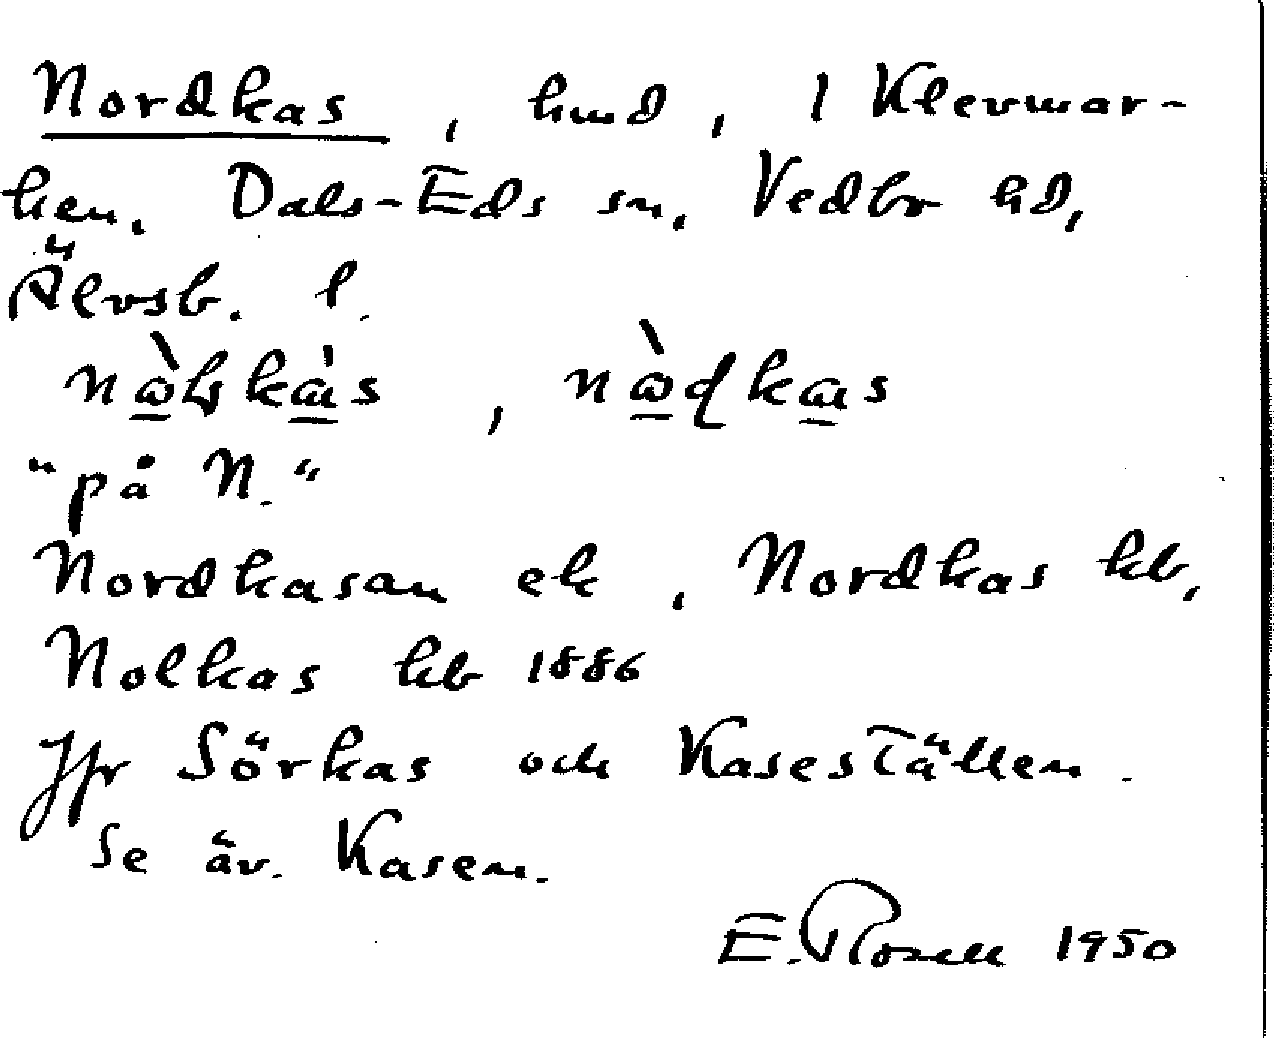 Nordkas, hmd, 1 Klevmar-
ken. Dals-Eds sn, Vedbo hd,
Älvsb. l.
"på N."
Nordkasan ek, Nordkas kb,
Nolkas kb 1886
Jfr Sörkas och Kaseställen.
Se äv. Kasen.
E. Rosell 1950